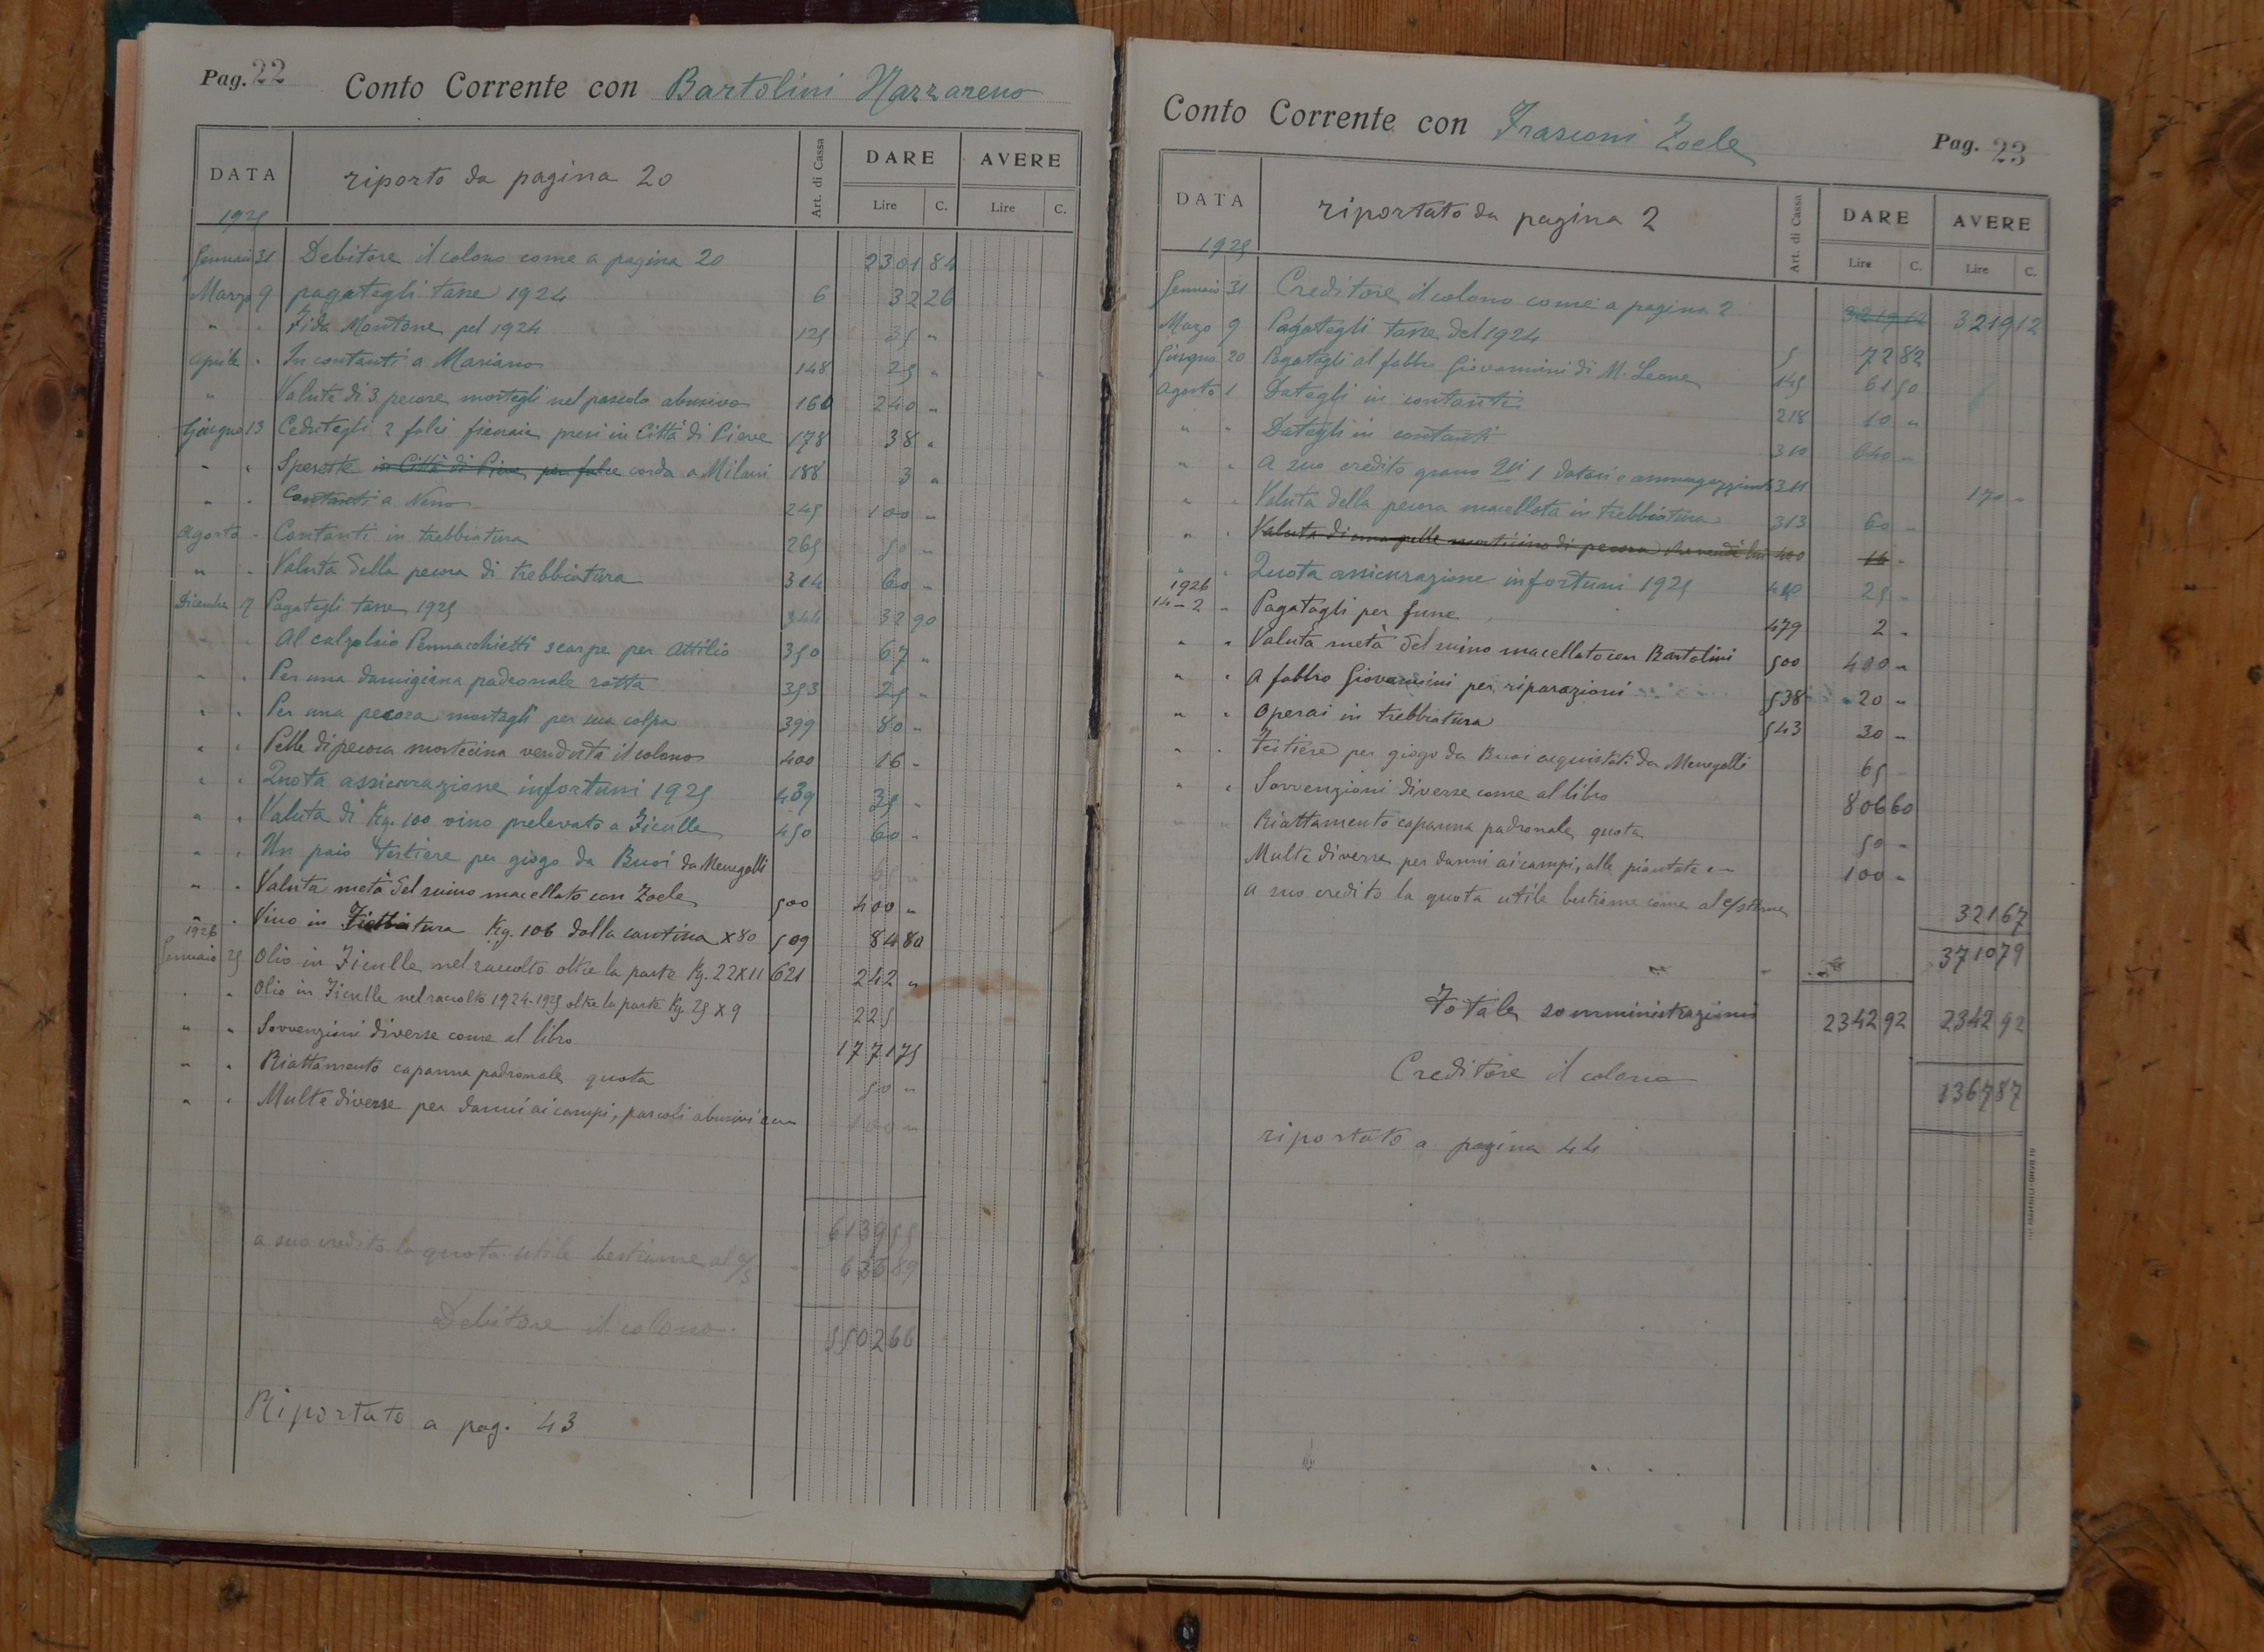 Pag. 22 Conto Corrente con Bartolini Nazzareno
DATA riporto da pagina 20 Art. di Cassa DARE AVERE
Lire C. Lire C.
1925
Gennaio 31 Debitore il colono come a pagina 20 2301 84
Marzo 9 pagategli tasse 1924 6 32 26
" " Fida Montone pel 1924 125 35 "
Aprile " In contanti a Mariano 148 25 "
" Valuta di 3 pecore mortegli nel pascolo abusivo 160 240 "
Giugno 13 Cedutegli 2 falci fienaie presi in Città di Pieve 178 38 "
" " Spesette in Città di Pieve per falce corda a Milani 188 3 "
" " Contanti a Neno 245 100 "
Agosto " Contanti in trebbiatura 265 50 "
" " Valuta della pecora di trebbiatura 314 60 "
Dicembre 17 Pagategli tasse 1925 344 32 90
" " Al calzolaio Pennacchietti scarpe per Attilio 350 67 "
" " Per una damigiana padronale rotta 353 25 "
" " Per una pecora mortagli per sua colpa 399 80 "
" " Pelle di pecora mortecina venduta il colono 400 16 "
" " Quota assicurazione infortuni 1925 439 35 "
" " Valuta di Kg. 100 vino prelevato a Ficulle 450 60 "
" " Un paio testiere per giogo da Buoi da Menegalli 65 "
" " Valuta metà del suino macellato con Zoele 500 400 "
" " Vino in Trebbiatura Kg. 106 dalla cantina x 80 509 84 80
1926
Gennaio 25 Olio in Ficulle nel raccolto oltre la parte Kg. 22 x 11 621 242 "
" " Olio in Ficulle nel raccolto 1924-1925 oltre la parte Kg. 25 x 9 225
" " Sovvenzioni diverse come al libro 1771 75
" " Riattamento capanna padronale quota 50 "
" " Multe diverse per danni ai campi, pascoli abusivi 100 "
6139 55
a suo credito la quota utile bestiame al c/s 636 89
Debitore il colono. 5502 66
Riportato a pag. 43
Conto Corrente con Frasconi Zoele Pag. 23
DATA riportato da pagina 2 Art. di Cassa DARE AVERE
Lire C. Lire C.
1925
Gennaio 31 Creditore il colono come a pagina 2 3219 12 3219 12
Marzo 9 Pagategli tasse del 1924 5 72 82
Giugno 20 Pagategli al fabbro Giovannini di M. Leone 145 61 50
Agosto 1 Dategli in contanti 218 10 "
" " Dategli in contanti 310 640 "
" " A suo credito grano Qli 1 datosi e ammagazzinato 311 170 "
" " Valuta della pecora macellata in trebbiatura 313 60 "
" " Valuta di una pelle morticina di pecora che vendè lui 400 16 "
" " Quota assicurazione infortuni 1925 440 25 "
1926
14-2 " Pagatagli per fune 479 2 "
" " Valuta metà del suino macellato con Bartolini 500 400 "
" " A fabbro Giovannini per riparazioni 538 20 "
" " Operai in trebbiatura 543 30 "
" " Testiere per giogo da Buoi acquistati da Menegalli 65 "
" " Sovvenzioni diverse come al libro 806 60
" " Riattamento capanna padronale quota 50 "
Multe diverse per danni ai campi, alle piantate 100 "
a suo credito la quota utile bestiame come al c/ 321 67
3710 79
Totale somministrazioni 2342 92 2342 92
Creditore il colono 1367 87
riportato a pagina 44